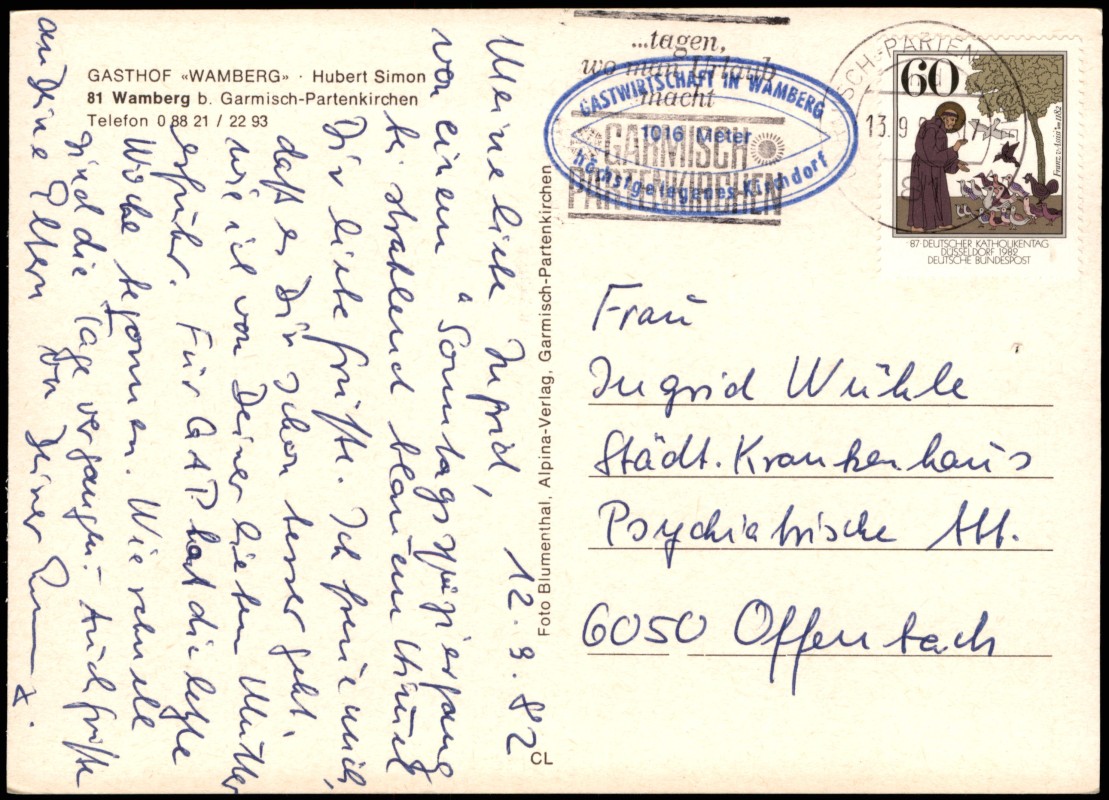 GASTHOF «WAMBERG» · Hubert Simon
81 Wamberg b. Garmisch-Partenkirchen
Telefon 0 88 21 / 22 93
12.9.82
Meine liebe Ingrid,
von einem "Sonntagsspaziergang
bei strahlend blauem Himmel
Dir liebe Grüße. Ich freue mich,
daß es Dir schon besser geht,
wie ich von Deiner lieben Mutter
erfuhr. Für GAP hat die letzte
Woche begonnen. Wie schnell
sind die Tage vergangen. Auch Grüße
an Deine Eltern von Deiner
Foto Blumenthal, Alpina-Verlag, Garmisch-Partenkirchen
CL
...tagen,
wo man Urlaub
macht
GARMISCH
PARTENKIRCHEN
GASTWIRTSCHAFT IN WAMBERG
1016 Meter
höchstgelegenes Kirchdorf
SCH-PARTEN
13.9
60
Franz v. Assisi 1182
87·DEUTSCHER KATHOLIKENTAG
DÜSSELDORF 1982
DEUTSCHE BUNDESPOST
Frau
Ingrid Wühle
Städt. Krankenhaus
Psychiatrische Abt.
6050 Offenbach